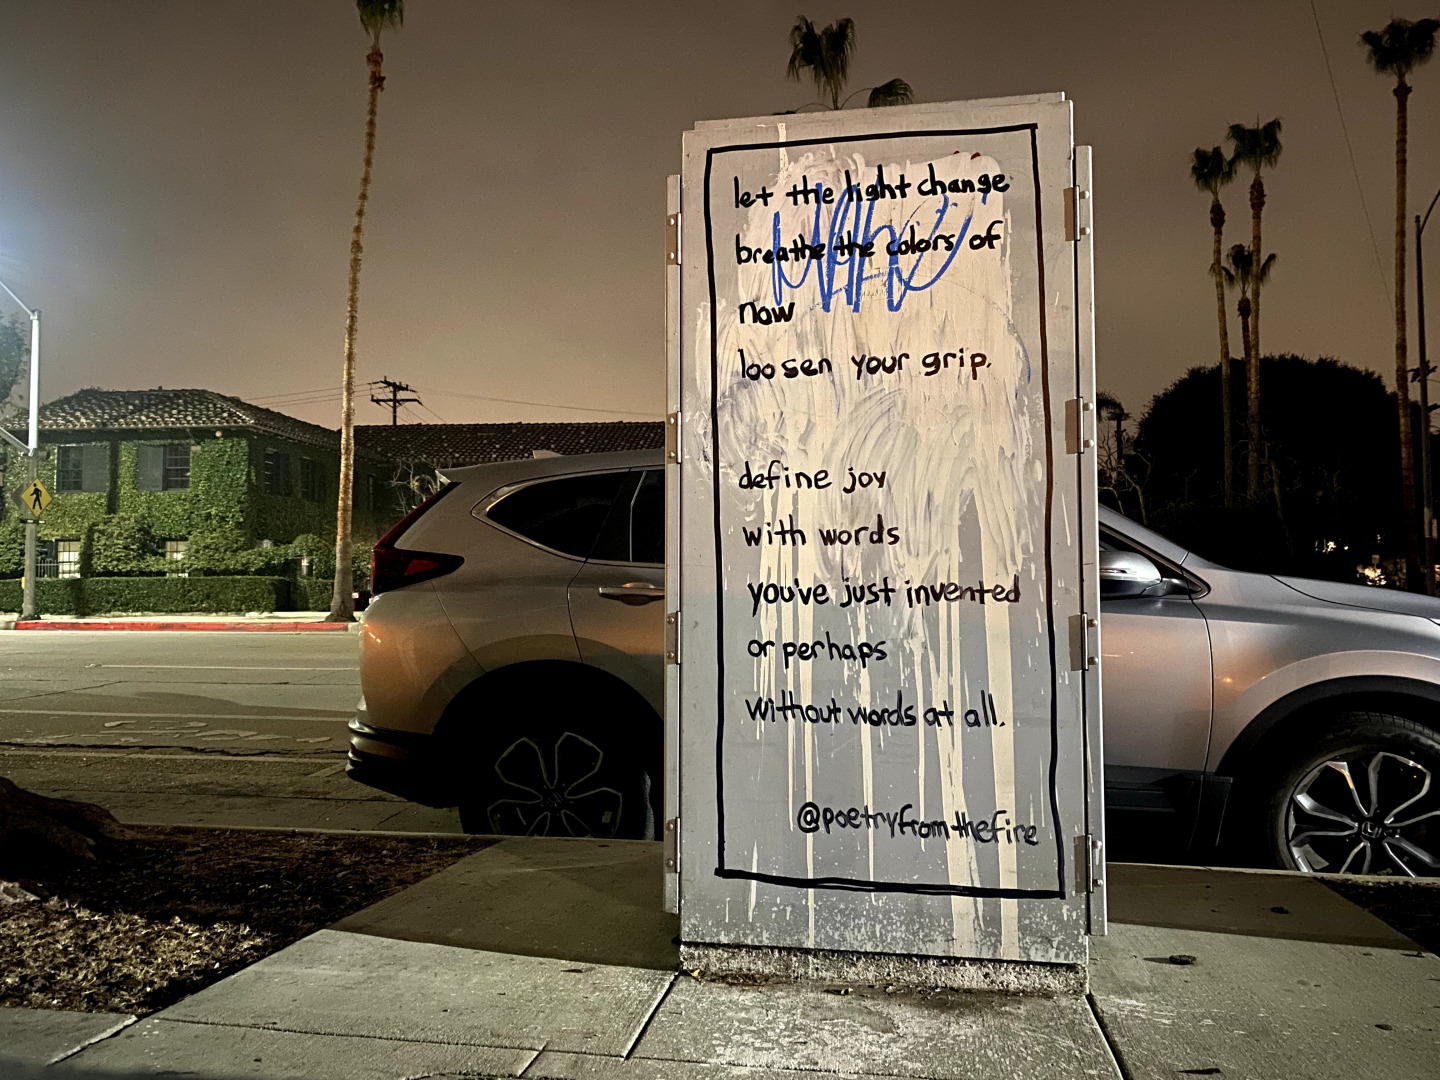 let the light change
breathe the colors of
now
loosen your grip.
define joy
with words
you've just invented
or perhaps
without words at all.
@poetryfromthefire